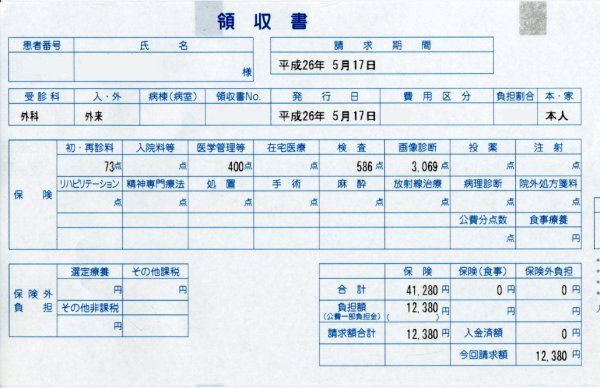 領収書
患者番号 氏名 請求期間
様 平成26年 5月17日
受診科 入・外 病棟(病室) 領収書No. 発行日 費用区分 負担割合 本・家
外科 外来 平成26年 5月17日 本人
初・再診料 入院料等 医学管理等 在宅医療 検査 画像診断 投薬 注射
73点 点 400点 点 586点 3,069点 点 点
保険
リハビリテーション 精神専門療法 処置 手術 麻酔 放射線治療 病理診断 院外処方箋料
点 点 点 点 点 点 点 点
公費分点数 食事療養
点 円
保険外負担
選定療養 その他課税
円 円
その他非課税
円
保険 保険(食事) 保険外負担
合計 41,280円 0円 0円
負担額 12,380
(公費一部負担金) ( )
請求額合計 12,380円 入金済額 0円
今回請求額 12,380円